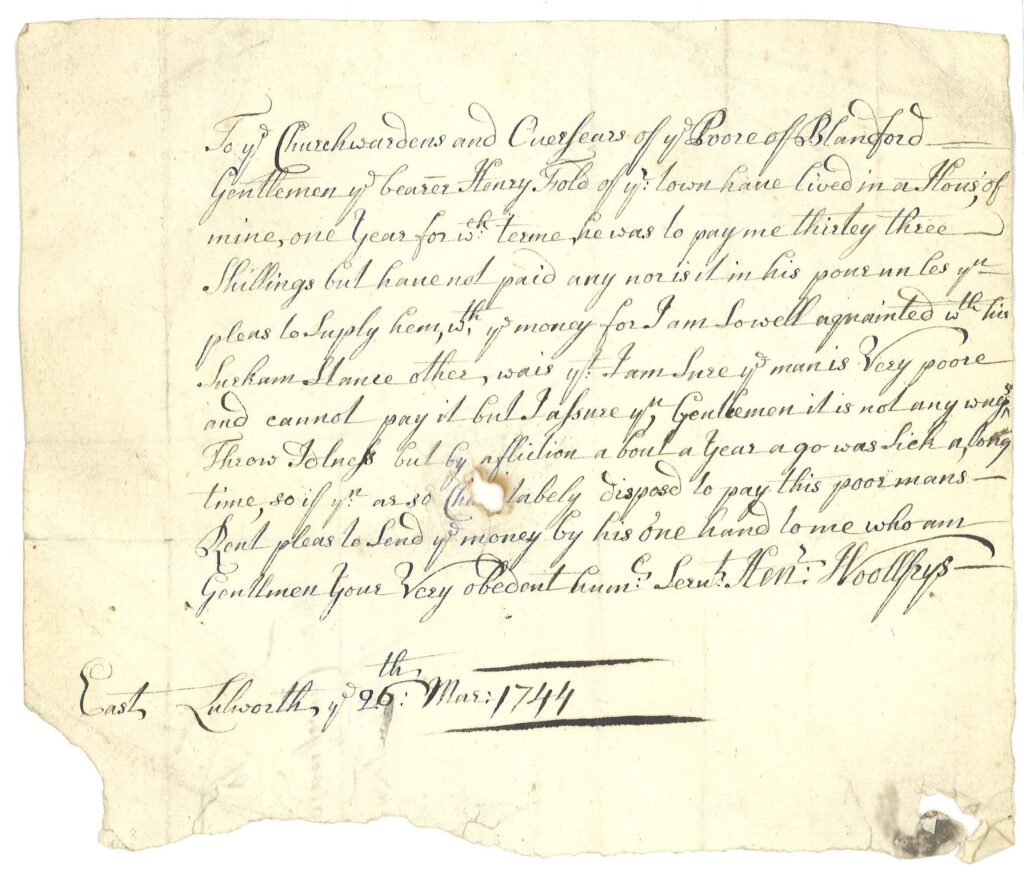 To ye Churchwardens and Oversears of ye Poore of Blandford
Gentlemen ye bearer Henry Fold of yr: town have lived in a Hous, of
mine, one Year for wch: terme, he was to pay me thirtey three
Shillings but have not paid any nor is it in his pour un les yu
pleas to Suply hem, wth, ye money for I am So well aquainted wth his
Surkam Stance other, wais yt: I am Sure ye man is Very poore
and cannot pay it but I assure yu, Gentlemen it is not any ways
Throw Idlness but by afliction a bout a Year a go was Sick a, long
time, so if yu ar so tabely disposd to pay this poor mans
Rent pleas to Send ye money by his one hand to me who am
Gentlmen Your Very obedent humc: Servt: Henr: Woollfrys
East, Lulworth, ye 26th: Mar: 1744